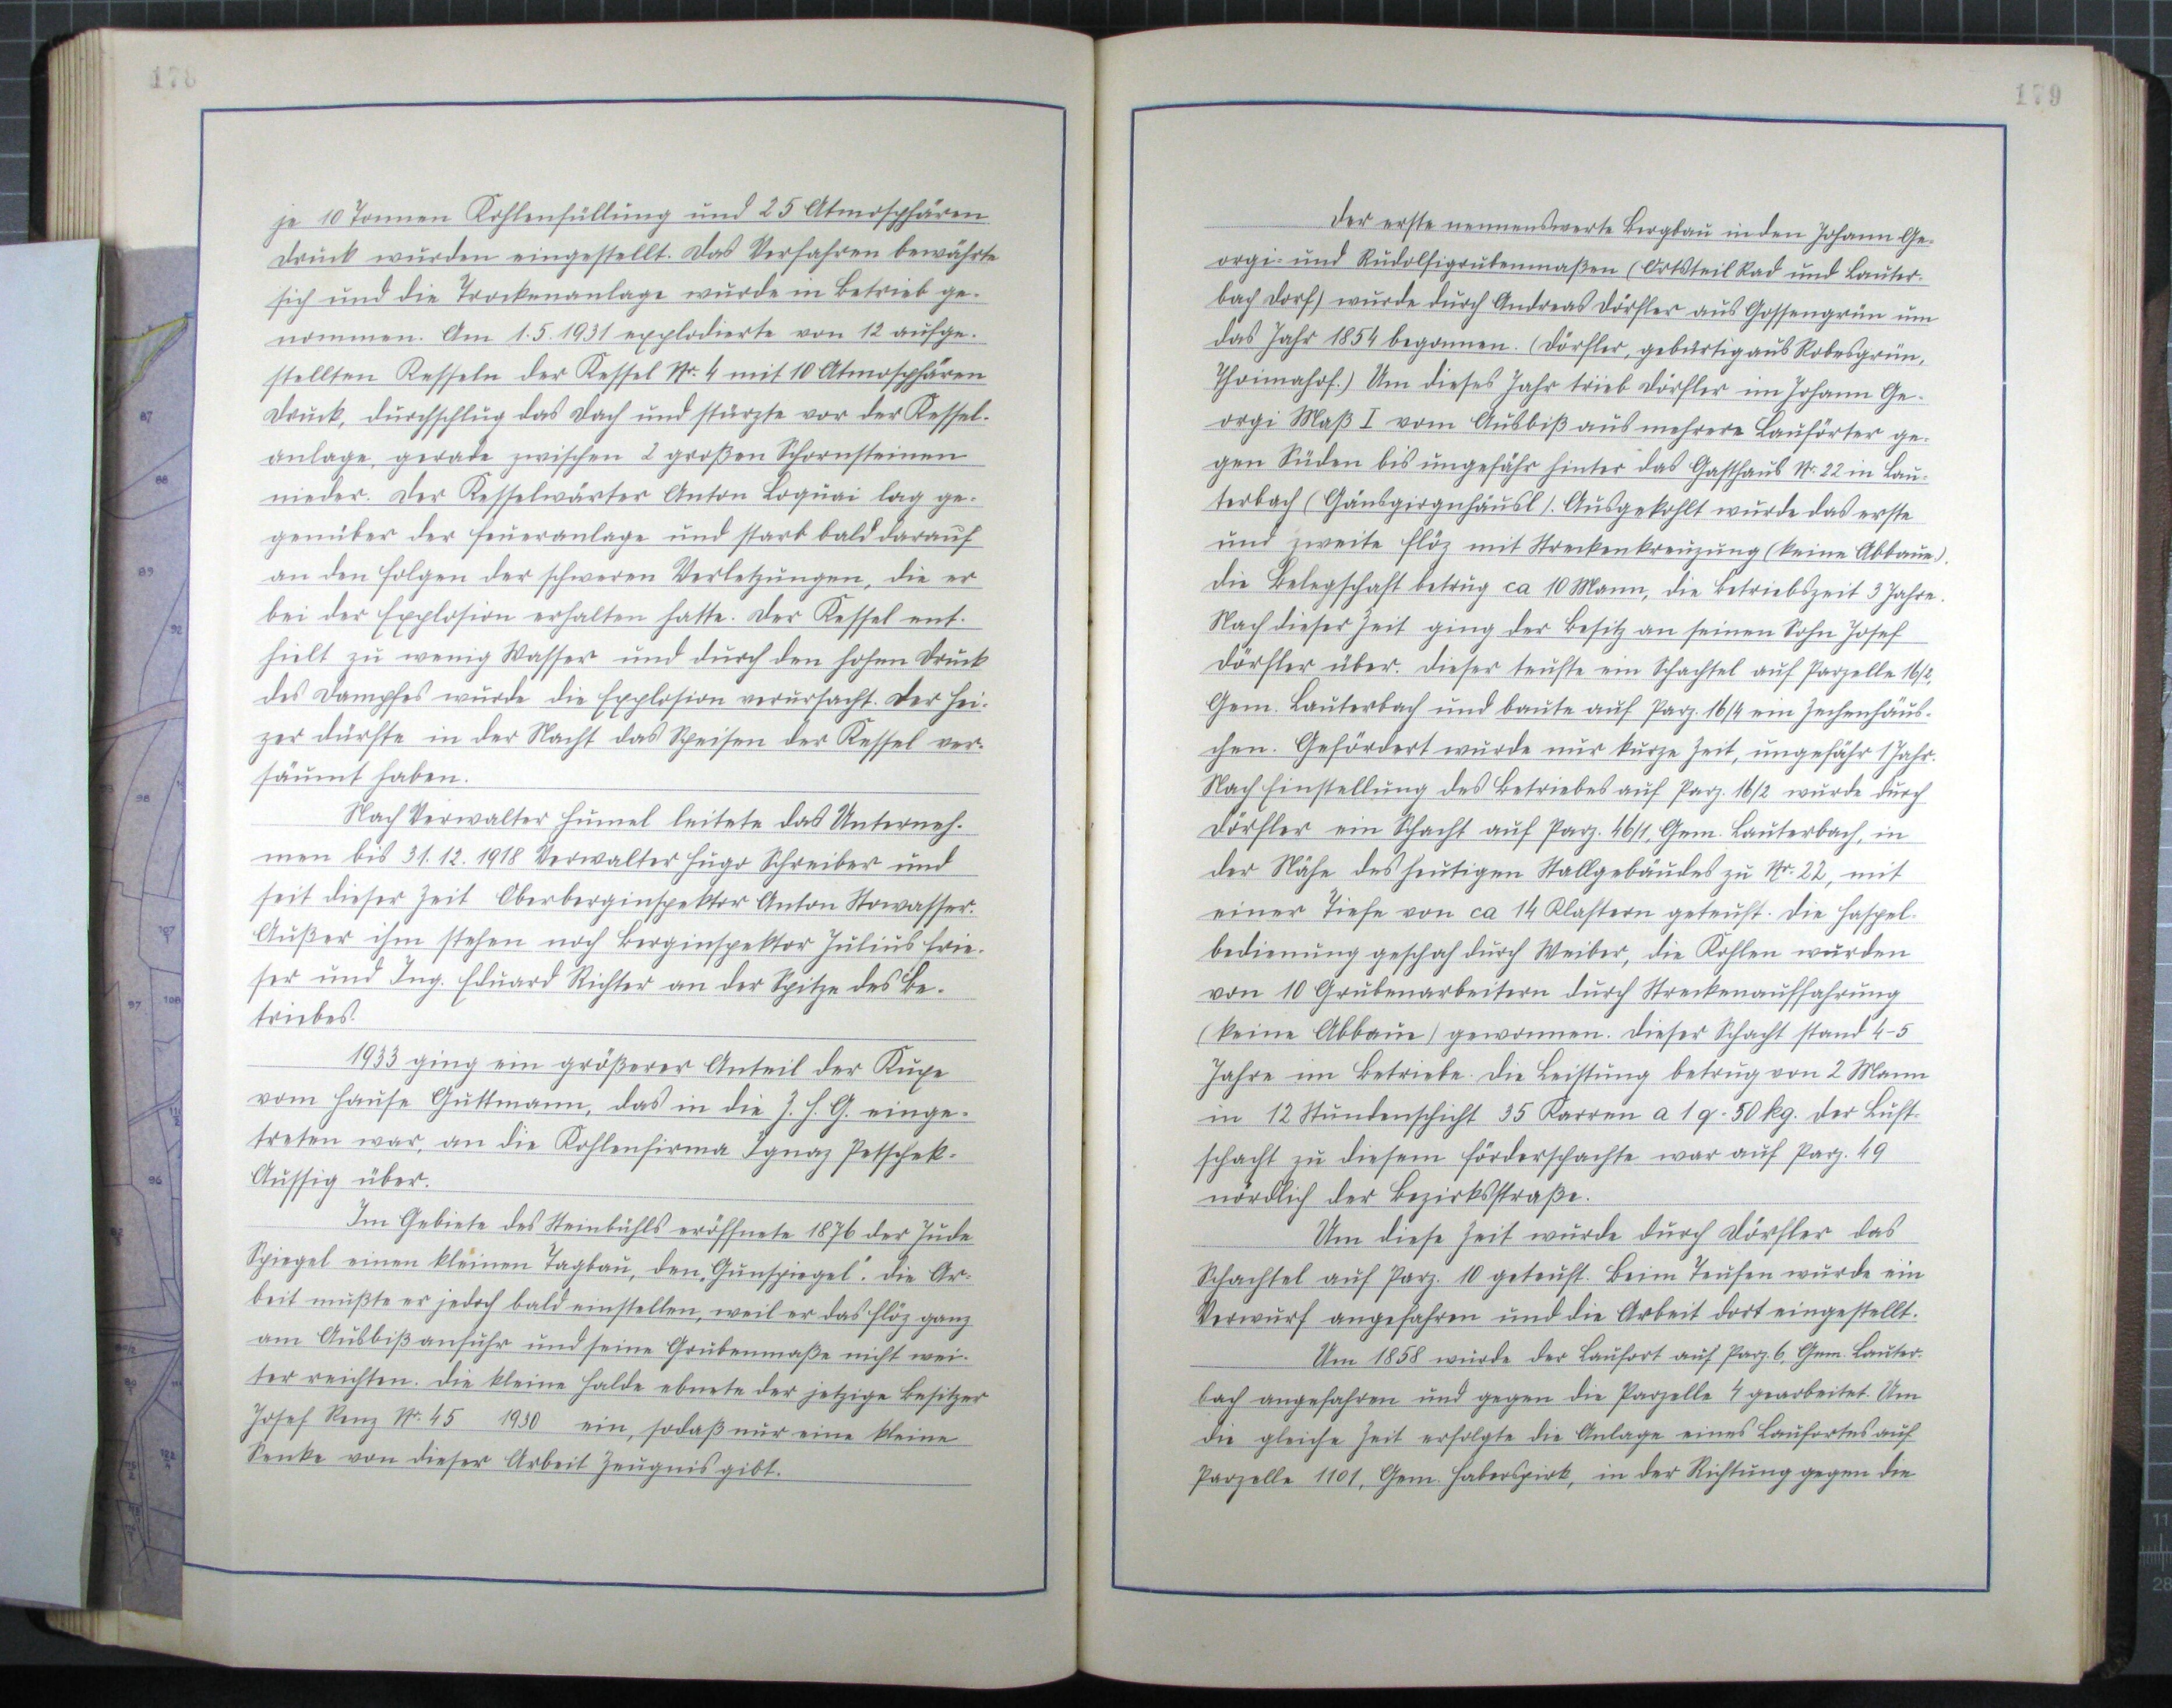 178
je 10 Tonnen Kohlenfüllung und 25 Atmosphären
Druck wurden eingestellt. Das Verfahren bewährte
sich und die Trockenanlage wurde in Betrieb ge-
nommen. Am 1.5.1931 explodierte von 12 aufge-
stellten Kesseln der Kessel Nr. 4 mit 10 Atmosphären
Druck, durchschlug das Dach und stürzte vor der Kessel-
anlage, gerade zwischen 2 großen Schornsteinen
nieder. Der Kesselwärter Anton Loquai lag ge-
genüber der Feueranlage und starb bald darauf
an den Folgen der schweren Verletzungen, die er
bei der Explosion erhalten hatte. Der Kessel ent-
hielt zu wenig Wasser und durch den hohen Druck
des Dampfes wurde die Explosion verursacht. Der Hei-
zer dürfte in der Nacht das Speisen der Kessel ver-
säumt haben.
Nach Verwalter Humel leitete das Unterneh-
men bis 31.12.1918 Verwalter Hugo Schreiber und
seit dieser Zeit Oberberginspektor Anton Stowasser.
Außer ihm stehen noch Berginspektor Julius Frie-
ser und Ing. Eduard Richter an der Spitze des Be-
triebes.
1933 ging ein größerer Anteil der Kuxe
vom Hause Guttmann, das in die Z. H. G. einge-
treten war, an die Kohlenfirma Ignaz Petschek-
Aussig über.
Im Gebiete des Steinbühls eröffnete 1876 der Jude
Spiegel einen kleinen Tagbau, den „Gunspiegel". Die Ar-
beit mußte er jedoch bald einstellen, weil er das Flöz ganz
am Ausbiß anfuhr und seine Grubenmaße nicht wei-
ter reichten. Die kleine Halde ebnete der jetzige Besitzer
Josef Renz Nr. 45 1930 ein, sodaß nur eine kleine
Senke von dieser Arbeit Zeugnis gibt.
179
Der erste nennenswerte Bergbau in den Johann Ge-
orgi- und Rudolfigrubenmaßen (Ortsteil Rad und Lauter-
bach Dorf) wurde durch Andreas Dörfler aus Gossengrün um
das Jahr 1854 begonnen. (Dörfler, gebürtig aus Robesgrün,
Theimahof.) Um dieses Jahr trieb Dörfler im Johann Ge-
orgi Maß I vom Ausbiß aus mehrere Lauförter ge-
gen Süden bis ungefähr hinter das Gasthaus Nr. 22 in Lau-
terbach (Gänsgirgnhäusl). Ausgekohlt wurde das erste
und zweite Flöz mit Streckenkreuzung (keine Abbaue).
Die Belegschaft betrug ca 10 Mann, die Betriebszeit 3 Jahre.
Nach dieser Zeit ging der Besitz an seinen Sohn Josef
Dörfler über. Dieser teufte ein Schachtel auf Parzelle 16/2,
Gem. Lauterbach und baute auf Parz. 16/4 ein Zechenhäus-
chen. Gefördert wurde nur kurze Zeit, ungefähr 1 Jahr.
Nach Einstellung des Betriebes auf Parz. 16/2 wurde durch
Dörfler ein Schacht auf Parz. 46/1, Gem. Lauterbach, in
der Nähe des heutigen Stallgebäudes zu Nr. 22, mit
einer Tiefe von ca 14 Klaftern geteuft. Die Haspel-
bedienung geschah durch Weiber, die Kohlen wurden
von 10 Grubenarbeitern durch Streckenauffahrung
(keine Abbaue) gewonnen. Dieser Schacht stand 4-5
Jahre im Betriebe. Die Leistung betrug von 2 Mann
in 12 Stundenschicht 35 Karren a 1 q - 50 kg. Der Luft-
schacht zu diesem Förderschachte war auf Parz. 49
nördlich der Bezirksstraße.
Um diese Zeit wurde durch Dörfler das
Schachtel auf Parz. 10 geteuft. Beim Teufen wurde ein
Verwurf angefahren und die Arbeit dort eingestellt.
Um 1858 wurde der Laufort auf Parz. 6, Gem. Lauter-
bach angefahren und gegen die Parzelle 4 gearbeitet. Um
die gleiche Zeit erfolgte die Anlage eines Laufortes auf
Parzelle 1101, Gem. Haberspirk, in der Richtung gegen die
87
88
89
92
98
107
97
108
96